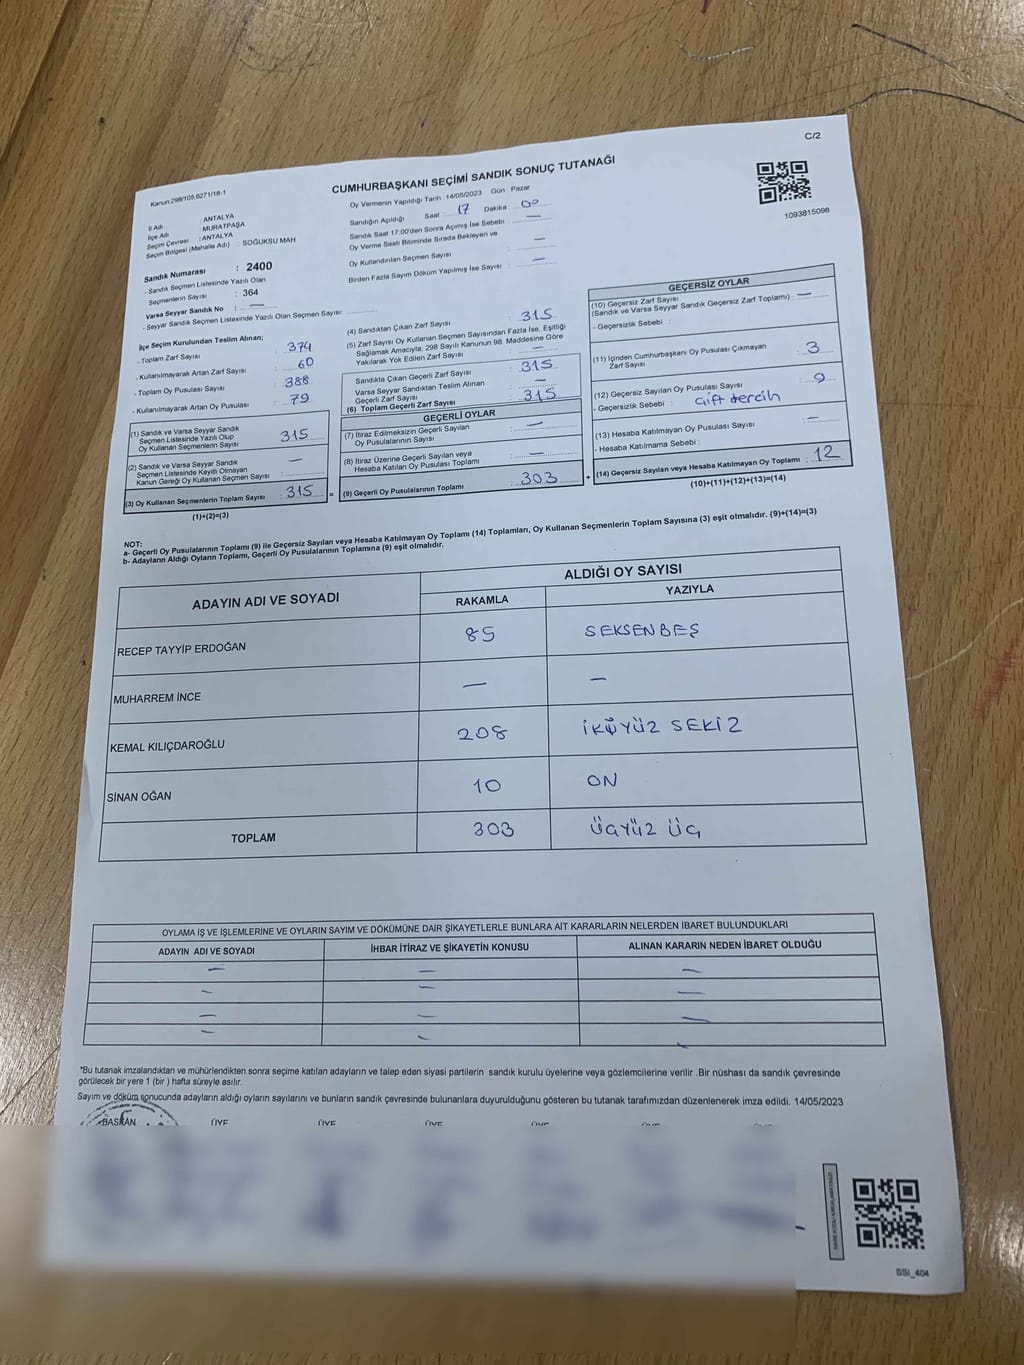 C/2
Kanun:298/105,6271/18-1
CUMHURBAŞKANI SEÇİMİ SANDIK SONUÇ TUTANAĞI
1093815096
İl Adı : ANTALYA
İlçe Adı : MURATPAŞA
Seçim Çevresi : ANTALYA
Seçim Bölgesi (Mahalle Adı) : SOĞUKSU MAH
Sandık Numarası : 2400
- Sandık Seçmen Listesinde Yazılı Olan
Seçmenlerin Sayısı : 364
Varsa Seyyar Sandık No : —
- Seyyar Sandık Seçmen Listesinde Yazılı Olan Seçmen Sayısı:
Oy Vermenin Yapıldığı Tarih : 14/05/2023 Gün : Pazar
Sandığın Açıldığı Saat : 17 Dakika : 00
Sandık Saat 17:00'den Sonra Açımış İse Sebebi : —
Oy Verme Saati Bitiminde Sırada Bekleyen ve
Oy Kullandırılan Seçmen Sayısı : —
Birden Fazla Sayım Döküm Yapılmış İse Sayısı : —
İlçe Seçim Kurulundan Teslim Alınan;
- Toplam Zarf Sayısı : 374
- Kullanılmayarak Artan Zarf Sayısı : 60
- Toplam Oy Pusulası Sayısı : 388
- Kullanılmayarak Artan Oy Pusulası : 79
(1) Sandık ve Varsa Seyyar Sandık
Seçmen Listesinde Yazılı Olup
Oy Kullanan Seçmenlerin Sayısı : 315
(2) Sandık ve Varsa Seyyar Sandık
Seçmen Listesinde Kayıtlı Olmayan
Kanun Gereği Oy Kullanan Seçmen Sayısı : —
(3) Oy Kullanan Seçmenlerin Toplam Sayısı : 315 =
(1)+(2)=(3)
(4) Sandıktan Çıkan Zarf Sayısı : 315
(5) Zarf Sayısı Oy Kullanan Seçmen Sayısından Fazla İse, Eşitliği
Sağlamak Amacıyla; 298 Sayılı Kanunun 98. Maddesine Göre
Yakılarak Yok Edilen Zarf Sayısı : —
Sandıkta Çıkan Geçerli Zarf Sayısı : 315
Varsa Seyyar Sandıktan Teslim Alınan
Geçerli Zarf Sayısı : —
(6) Toplam Geçerli Zarf Sayısı : 315
GEÇERLİ OYLAR
(7) İtiraz Edilmeksizin Geçerli Sayılan
Oy Pusulalarının Sayısı : —
(8) İtiraz Üzerine Geçerli Sayılan veya
Hesaba Katılan Oy Pusulası Toplamı : —
(9) Geçerli Oy Pusulalarının Toplamı : 303 +
GEÇERSİZ OYLAR
(10) Geçersiz Zarf Sayısı
(Sandık ve Varsa Seyyar Sandık Geçersiz Zarf Toplamı) : —
- Geçersizlik Sebebi :
(11) İçinden Cumhurbaşkanı Oy Pusulası Çıkmayan
Zarf Sayısı : 3
(12) Geçersiz Sayılan Oy Pusulası Sayısı : 9
- Geçersizlik Sebebi : Çift tercih
(13) Hesaba Katılmayan Oy Pusulası Sayısı : —
- Hesaba Katılmama Sebebi :
(14) Geçersiz Sayılan veya Hesaba Katılmayan Oy Toplamı : 12
(10)+(11)+(12)+(13)=(14)
NOT:
a- Geçerli Oy Pusulalarının Toplamı (9) ile Geçersiz Sayılan veya Hesaba Katılmayan Oy Toplamı (14) Toplamları, Oy Kullanan Seçmenlerin Toplam Sayısına (3) eşit olmalıdır. (9)+(14)=(3)
b- Adayların Aldığı Oyların Toplamı, Geçerli Oy Pusulalarının Toplamına (9) eşit olmalıdır.
ADAYIN ADI VE SOYADI ALDIĞI OY SAYISI
RAKAMLA YAZIYLA
RECEP TAYYİP ERDOĞAN 85 SEKSENBEŞ
MUHARREM İNCE — —
KEMAL KILIÇDAROĞLU 208 İKİYÜZ SEKİZ
SİNAN OĞAN 10 ON
TOPLAM 303 ÜÇYÜZ ÜÇ
OYLAMA İŞ VE İŞLEMLERİNE VE OYLARIN SAYIM VE DÖKÜMÜNE DAİR ŞİKAYETLERLE BUNLARA AİT KARARLARIN NELERDEN İBARET BULUNDUKLARI
ADAYIN ADI VE SOYADI İHBAR İTİRAZ VE ŞİKAYETİN KONUSU ALINAN KARARIN NEDEN İBARET OLDUĞU
— — —
— — —
— — —
— — —
*Bu tutanak imzalandıktan ve mühürlendikten sonra seçime katılan adayların ve talep eden siyasi partilerin sandık kurulu üyelerine veya gözlemcilerine verilir .Bir nüshası da sandık çevresinde
görülecek bir yere 1 (bir ) hafta süreyle asılır.
Sayım ve döküm sonucunda adayların aldığı oyların sayılarını ve bunların sandık çevresinde bulunanlara duyurulduğunu gösteren bu tutanak tarafımızdan düzenlenerek imza edildi. 14/05/2023
BAŞKAN ÜYE ÜYE ÜYE ÜYE
SSI_404